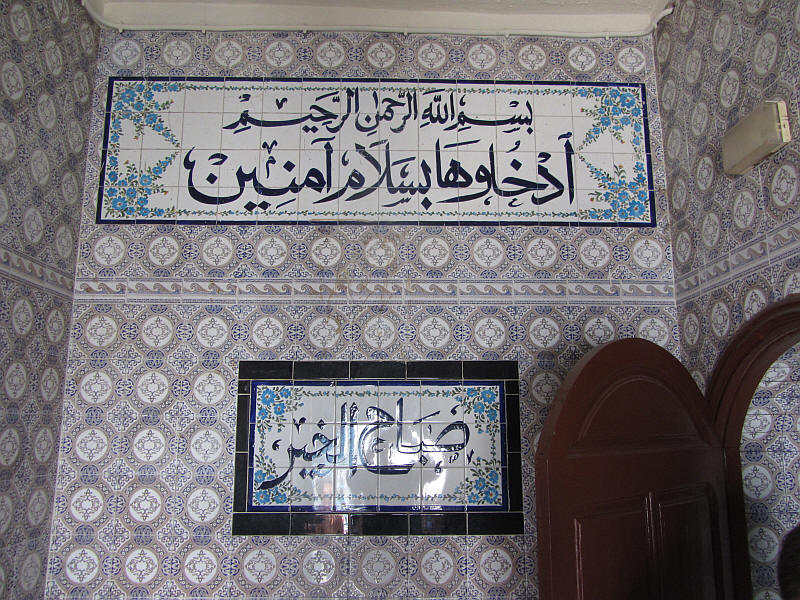 بِسْمِ اللَّهِ الرَّحْمَنِ الرَّحِيمِ
أَدْخُلُوهَا بِسَلَامٍ آمَنِينَ
صَبَاحُ الخَيْرِ